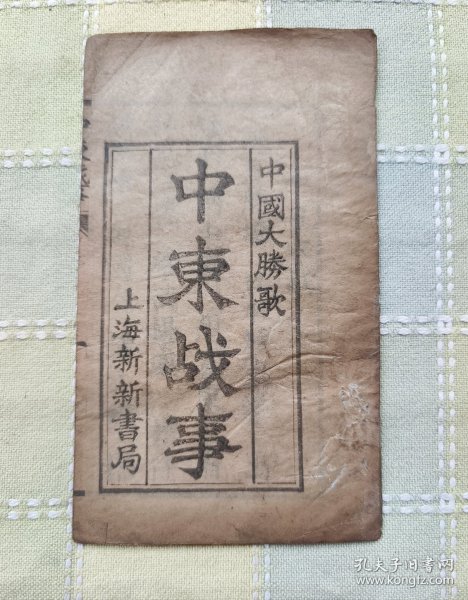 中國大勝歌
中東战事
上海新新書局
孔夫子旧书网
www.kongfz.com